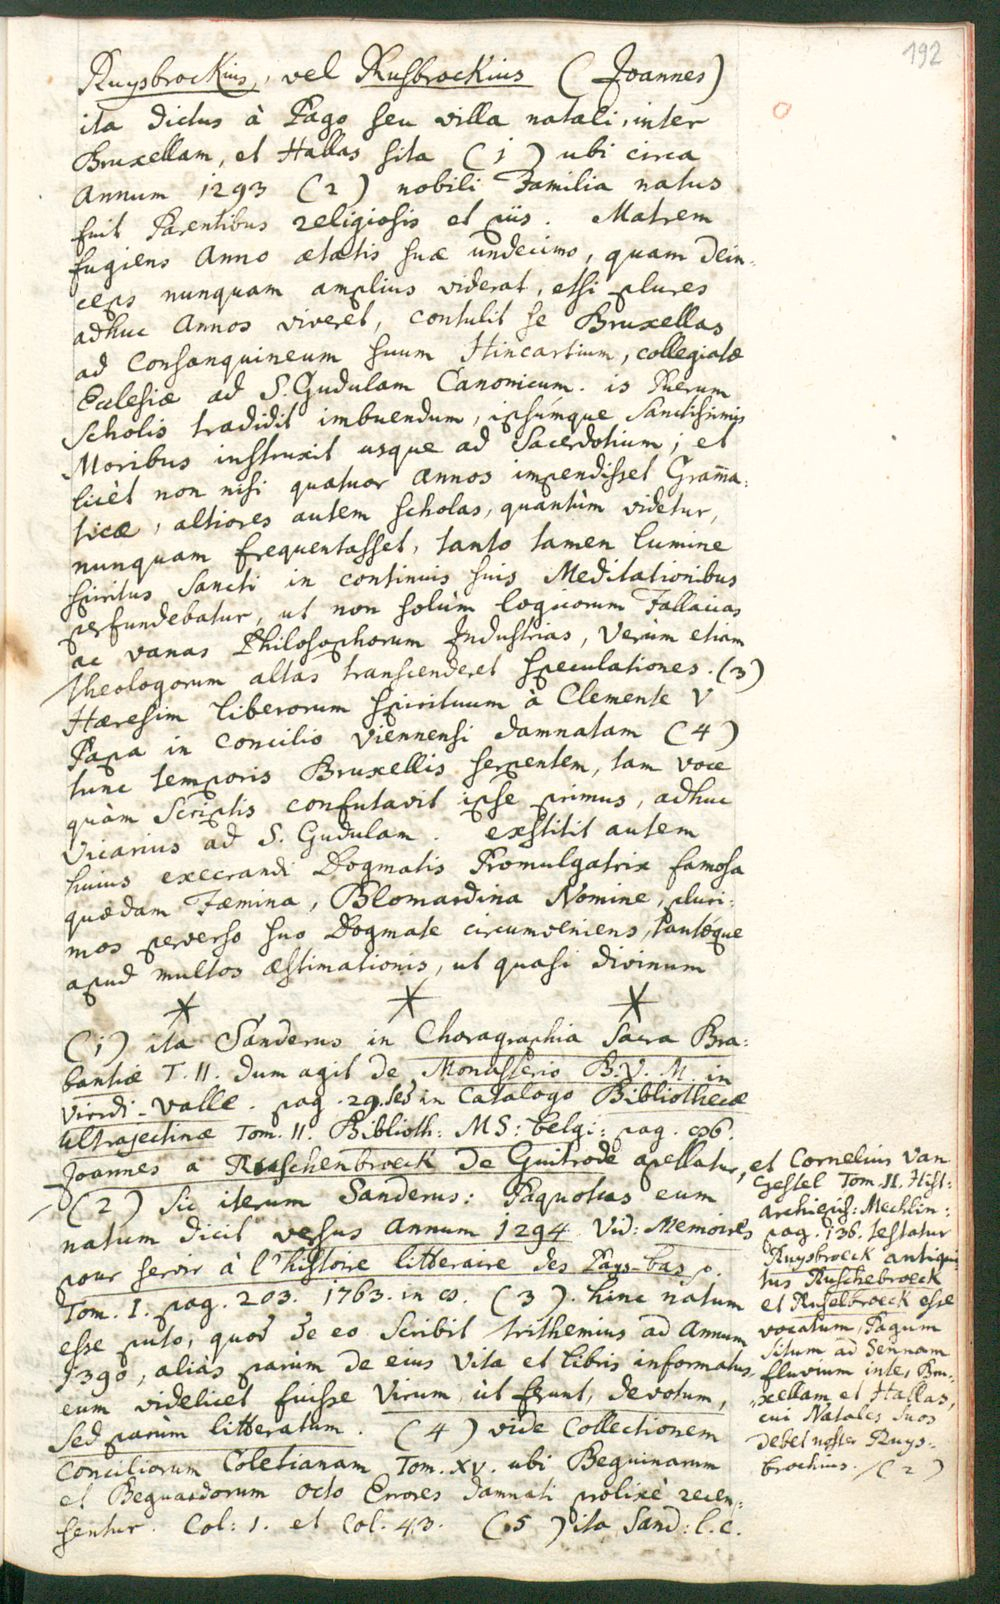 192
Ruysbrockius, vel Rusbrockius (Joannes)
ita dictus à Pago seu villa natali, inter
Bruxellam, et Hallas sita (1) ubi circa
Annum 1293 (2) nobili Familia natus
fuit Parentibus religiosis et piis. Matrem
fugiens Anno ætatis suæ undecimo, quam dein-
ceps nunquam amplius viderat, etsi plures
adhuc Annos viveret, contulit se Bruxellas
ad Consanquineum suum Hincartium, collegiatæ
Eclesiæ ad S. Gudulam Canonicum. is Puerum
Scholis tradidit imbuendum, ipsúmque Sanctissimis
Moribus instruxit usque ad Sacerdotium; et
licèt non nisi quatuor Annos impendisset Gram̄a-
ticæ, altiores autem scholas, quantùm videtur,
nunquam frequentasset, tanto tamen lumine
spiritus Sancti in continuis suis Meditationibus
perfundebatur, ut non solùm logicorum Fallacias
ac vanas Philosophorum Industrias, verùm etiam
theologorum altas transcenderet speculationes. (3)
Hæresim liberorum spirituum à Clemente V
Papa in Concilio Viennensi damnatam (4)
tunc temporis Bruxellis serpentem, tam voce
quàm Scriptis confutavit ipse primus, adhuc
Vicarius ad S. Gudulam. exstitit autem
huius execrandi Dogmatis Promulgatrix famosa
quædam Fæmina, Blomardina Nomine, pluri-
mos perverso suo Dogmate circumveniens, tantóque
apud multos æstimationis, ut quasi divinum
* * *
(1) ita Sanderus in Choragraphia Sacra Bra-
bantiæ T. II. dum agit de Monasterio B. V. M. in
Viridi-valle. pag. 29. sed in Catalogo Bibliothecæ
Ultrajectinæ Tom. II. Biblioth: MS: belgi: pag.
Joannes a Ruschenbroeck de Guitrode apellatur, et Cornelius van
Gestel Tom. II. Hist:
Archiepis: Mechlin:
pag. 136. testatur
Ruysbroeck antiqui-
tus Ruschebroeck
et Ruselbroeck esse
vocatum, Pagum
situm ad Sennam
fluvium inter Bru-
xellam et Hallas,
cui Natales suos
debet noster Ruys-
brochius. (2)
(2) Sic iterum Sanderus: Paquotius eum
natum dicit versus Annum 1294 Vid: Memoires
pour servir à l'histoire litteraire des Pays-bas p.
Tom. I. pag. 203. 1763. in (3). hinc natum
esse puto, quod de eo Scribit trithemius ad Annum
1390, aliàs parùm de eius Vita et libris informatus,
eum videlicet fuisse Virum, ùt ferunt, devotum,
sed parùm litteratum. (4) vide Collectionem
Conciliorum Coletianam Tom. XV. ubi Beguinarum
et Beguardorum octo Errores damnati prolixè recen-
sentur. Col: 1. et Col. 43. (5) ita Sand: l. c.